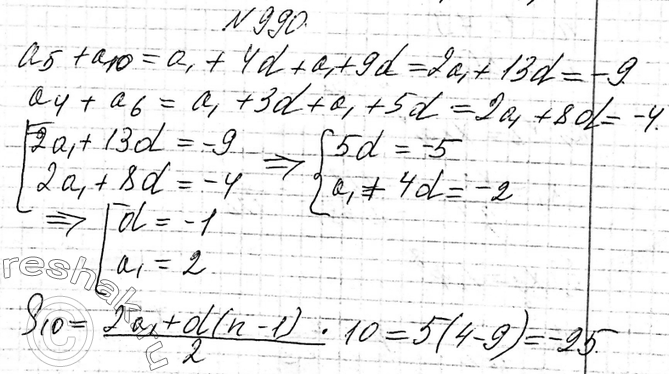 N 990.
a5 + a10 = a1 + 4d + a1 + 9d = 2a1 + 13d = -9
a4 + a6 = a1 + 3d + a1 + 5d = 2a1 + 8d = -4.
{2a1 + 13d = -9 ⇒ {5d = -5
{2a1 + 8d = -4 {a1 + 4d = -2
⇒ {d = -1
{a1 = 2
S10 = (2a1 + d(n - 1))/2 · 10 = 5(4 - 9) = -25.
reshak.ru